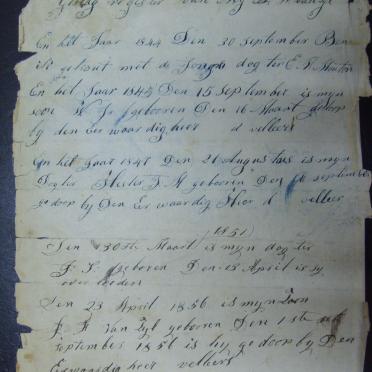 En het Jaar 1844 Den 20 September Ben
ik getrout met de Jonge dogter E.
En het Jaar 1845 Den 15 September is myn
soon geboren Den 16 Maart gedoop
by den Eer waardig heer d velleers
En het Jaar 1848 Den 21 Augustus is myn
Dogter Hester J M geboren Den 16 september
gedoop by Den Eer waardig Heer d velleer
(1851)
Den 30ste Maart is myn dog ter
J. S. geboren Den 15 April is sy
over leeden
Den 23 April 1856 is myn Zoon
J. F Van Zyl geboren Den 1ste
september 1856 is hy gedoop by Den
Eerwaardig heer velleers